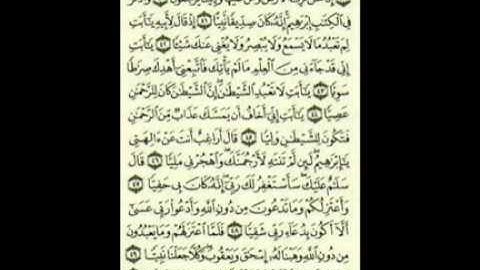 إِنَّا نَحْنُ نَرِثُ ٱلْأَرْضَ وَمَنْ عَلَيْهَا وَإِلَيْنَا يُرْجَعُونَ ٤٠ وَٱذْكُرْ
فِي ٱلْكِتَٰبِ إِبْرَٰهِيمَ ۚ إِنَّهُۥ كَانَ صِدِّيقًا نَّبِيًّا ٤١ إِذْ قَالَ لِأَبِيهِ يَٰٓأَبَتِ
لِمَ تَعْبُدُ مَا لَا يَسْمَعُ وَلَا يُبْصِرُ وَلَا يُغْنِي عَنكَ شَيْـًٔا ٤٢ يَٰٓأَبَتِ
إِنِّي قَدْ جَآءَنِي مِنَ ٱلْعِلْمِ مَا لَمْ يَأْتِكَ فَٱتَّبِعْنِيٓ أَهْدِكَ صِرَٰطًا
سَوِيًّا ٤٣ يَٰٓأَبَتِ لَا تَعْبُدِ ٱلشَّيْطَٰنَ ۖ إِنَّ ٱلشَّيْطَٰنَ كَانَ لِلرَّحْمَٰنِ
عَصِيًّا ٤٤ يَٰٓأَبَتِ إِنِّيٓ أَخَافُ أَن يَمَسَّكَ عَذَابٌ مِّنَ ٱلرَّحْمَٰنِ
فَتَكُونَ لِلشَّيْطَٰنِ وَلِيًّا ٤٥ قَالَ أَرَاغِبٌ أَنتَ عَنْ ءَالِهَتِي
يَٰٓإِبْرَٰهِيمُ ۖ لَئِن لَّمْ تَنتَهِ لَأَرْجُمَنَّكَ ۖ وَٱهْجُرْنِي مَلِيًّا ٤٦ قَالَ
سَلَٰمٌ عَلَيْكَ ۖ سَأَسْتَغْفِرُ لَكَ رَبِّيٓ ۖ إِنَّهُۥ كَانَ بِي حَفِيًّا ٤٧
وَأَعْتَزِلُكُمْ وَمَا تَدْعُونَ مِن دُونِ ٱللَّهِ وَأَدْعُوا۟ رَبِّي عَسَىٰٓ
أَلَّآ أَكُونَ بِدُعَآءِ رَبِّي شَقِيًّا ٤٨ فَلَمَّا ٱعْتَزَلَهُمْ وَمَا يَعْبُدُونَ
مِن دُونِ ٱللَّهِ وَهَبْنَا لَهُۥٓ إِسْحَٰقَ وَيَعْقُوبَ ۖ وَكُلًّا جَعَلْنَا نَبِيًّا ٤٩